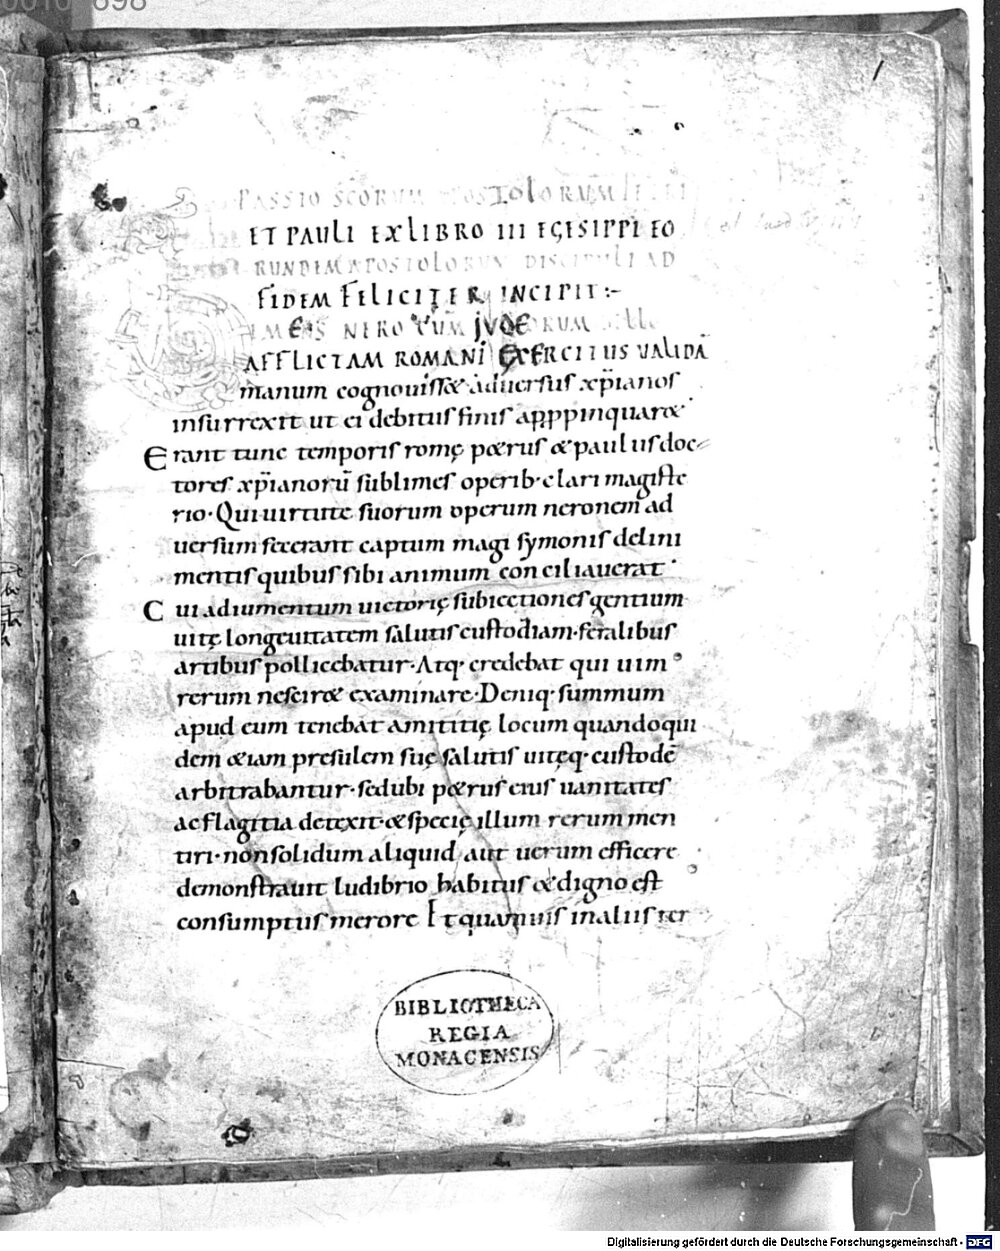 1
PASSIO SCORUM APOSTOLORUM PETRI
ET PAULI EX LIBRO III EGESIPPI EO
RUNDEM APOSTOLORUM DISCIPULI AD
FIDEM FELICITER INCIPIT:-
NERO CUM JUDEORUM
AFFLICTAM ROMANI EXERCITUS VALIDĀ
manum cognouissę aduersus xp̄ianos
insurrexit ut ei debitus finis appppinquaret·
Erant tunc temporis romę petrus & paulus doc-
tores xp̄ianorū sublimes operib· clari magiste
rio· Qui uirtute suorum operum neronem ad
uersum fecerant captum magi symonis delini
mentis quibus sibi animum conciliauerat·
Cui adiumentum uictorię subiectiones gentium
uitę longeuitatem salutis custodiam· feralibus
artibus pollicebatur· Atq· credebat qui uim
rerum nesciret examinare· Deniq· summum
apud eum tenebat amititię locum quandoqui
dem &iam presulem suę salutis uitęq· custodē
arbitrabantur· sed ubi petrus eius uanitates
ac flagitia detexit· & specię illum rerum men
tiri· non solidum aliquid aut uerum efficere
demonstrauit ludibrio habitus & digno est
consumptus merore Et quamuis in aliis ter
BIBLIOTHECA
REGIA
MONACENSIS
Digitalisierung gefördert durch die Deutsche Forschungsgemeinschaft - DFG